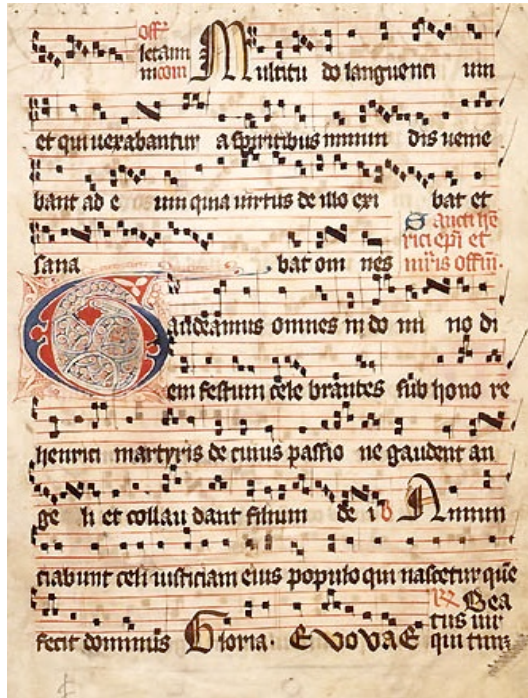 Off.
letam
ni com Multitu do languenti um
et qui uexabantur a spiritibus inmun dis ueme
bant ad e um quia uirtus de illo exi bat et
sana bat om nes
Sancti hē
rici epi et
mr̄is offm̄.
Gaudeamus omnes in do mi no di
em festum cele brantes sub hono re
henrici martyris de cuius passio ne gaudent an
ge li et collau dant filium de i Annun
ciabunt celi iusticiam eius populo qui nascetur quē
fecit dominus Gloria. EVOVAE Bea
tus uir
qui tim